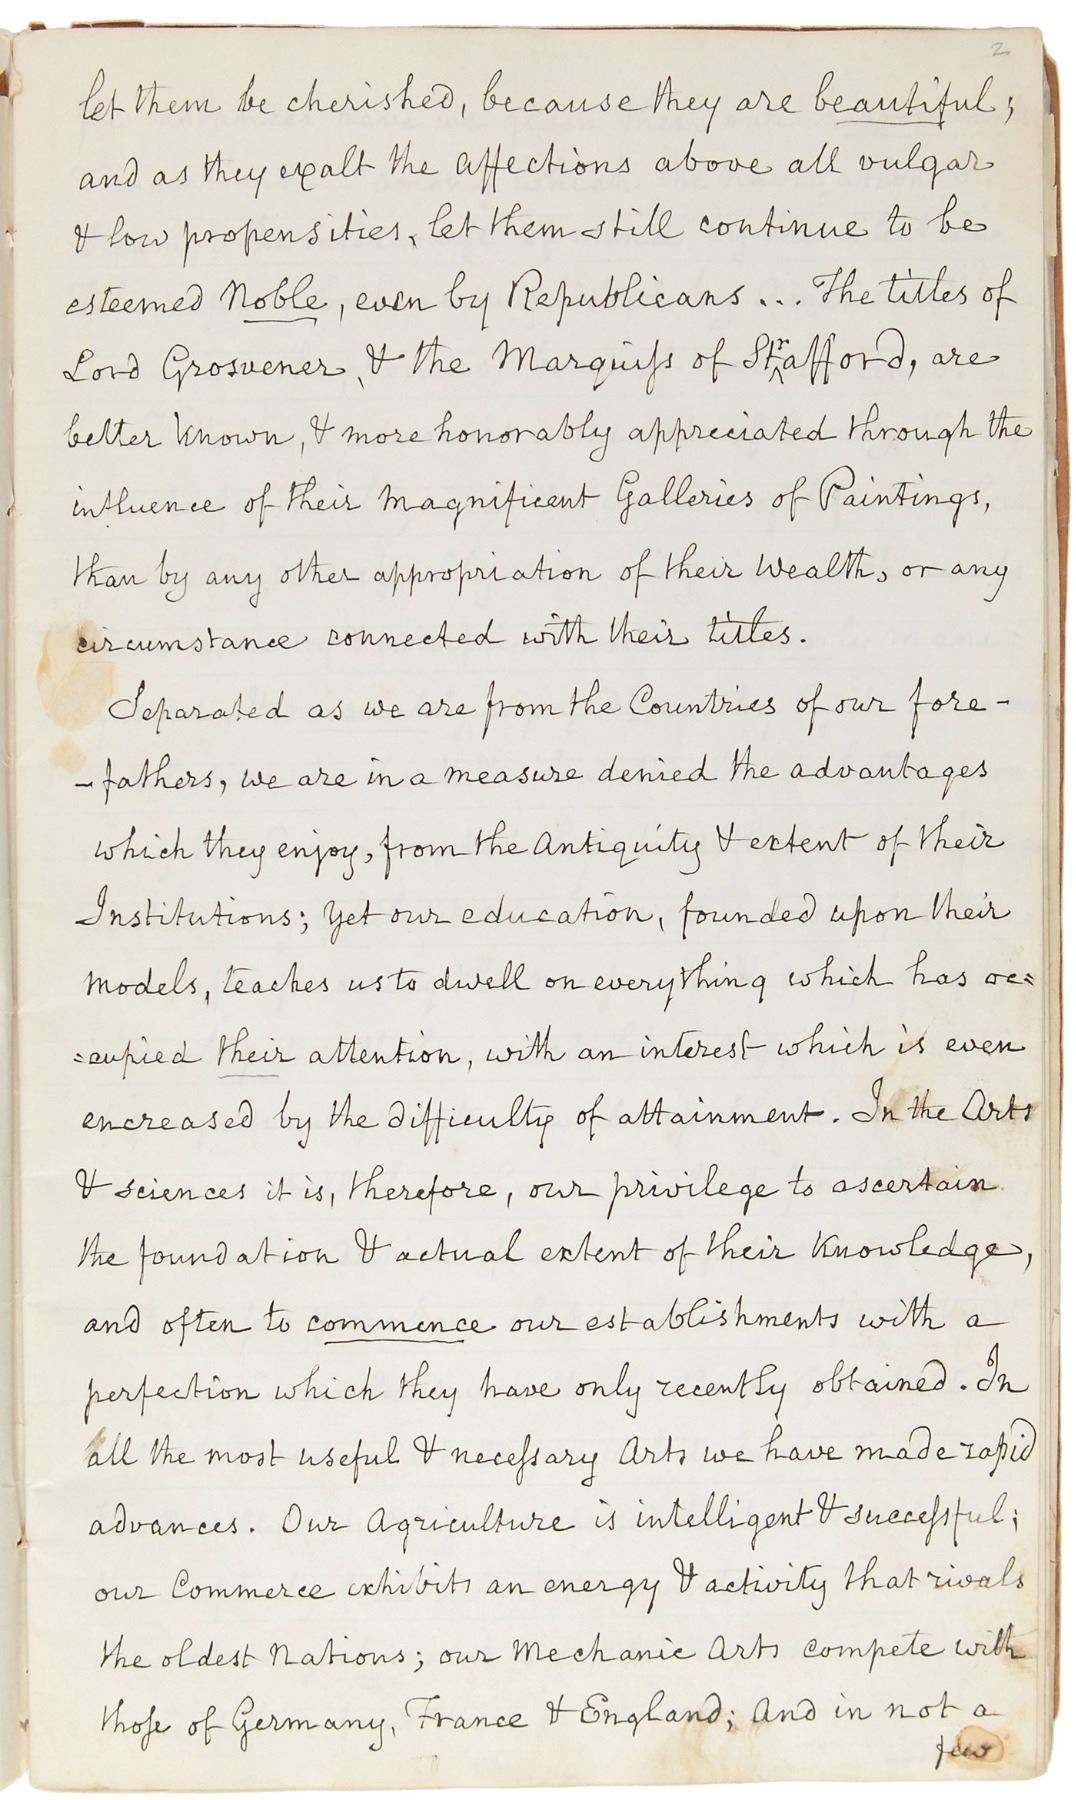 2
let them be cherished, because they are beautiful;
and as they exalt the affections above all vulgar
& low propensities, let them still continue to be
esteemed Noble, even by Republicans ... The titles of
Lord Grosvener, & the Marquiss of Strafford, are
better known, & more honorably appreciated through the
influence of their magnificent Galleries of Paintings,
than by any other appropriation of their Wealth, or any
circumstance connected with their titles.
Separated as we are from the Countries of our fore-
-fathers, we are in a measure denied the advantages
which they enjoy, from the Antiquity & extent of their
Institutions; yet our education, founded upon their
models, teaches us to dwell on everything which has oc=
=cupied their attention, with an interest which is even
encreased by the difficulty of attainment. In the Arts
& sciences it is, therefore, our privilege to ascertain
the foundation & actual extent of their Knowledge,
and often to commence our establishments with a
perfection which they have only recently obtained. In
all the most useful & necessary Arts we have made rapid
advances. Our Agriculture is intelligent & successful;
our Commerce exhibits an energy & activity that rivals
the oldest Nations; our Mechanic Arts compete with
those of Germany, France & England; And in not a
few